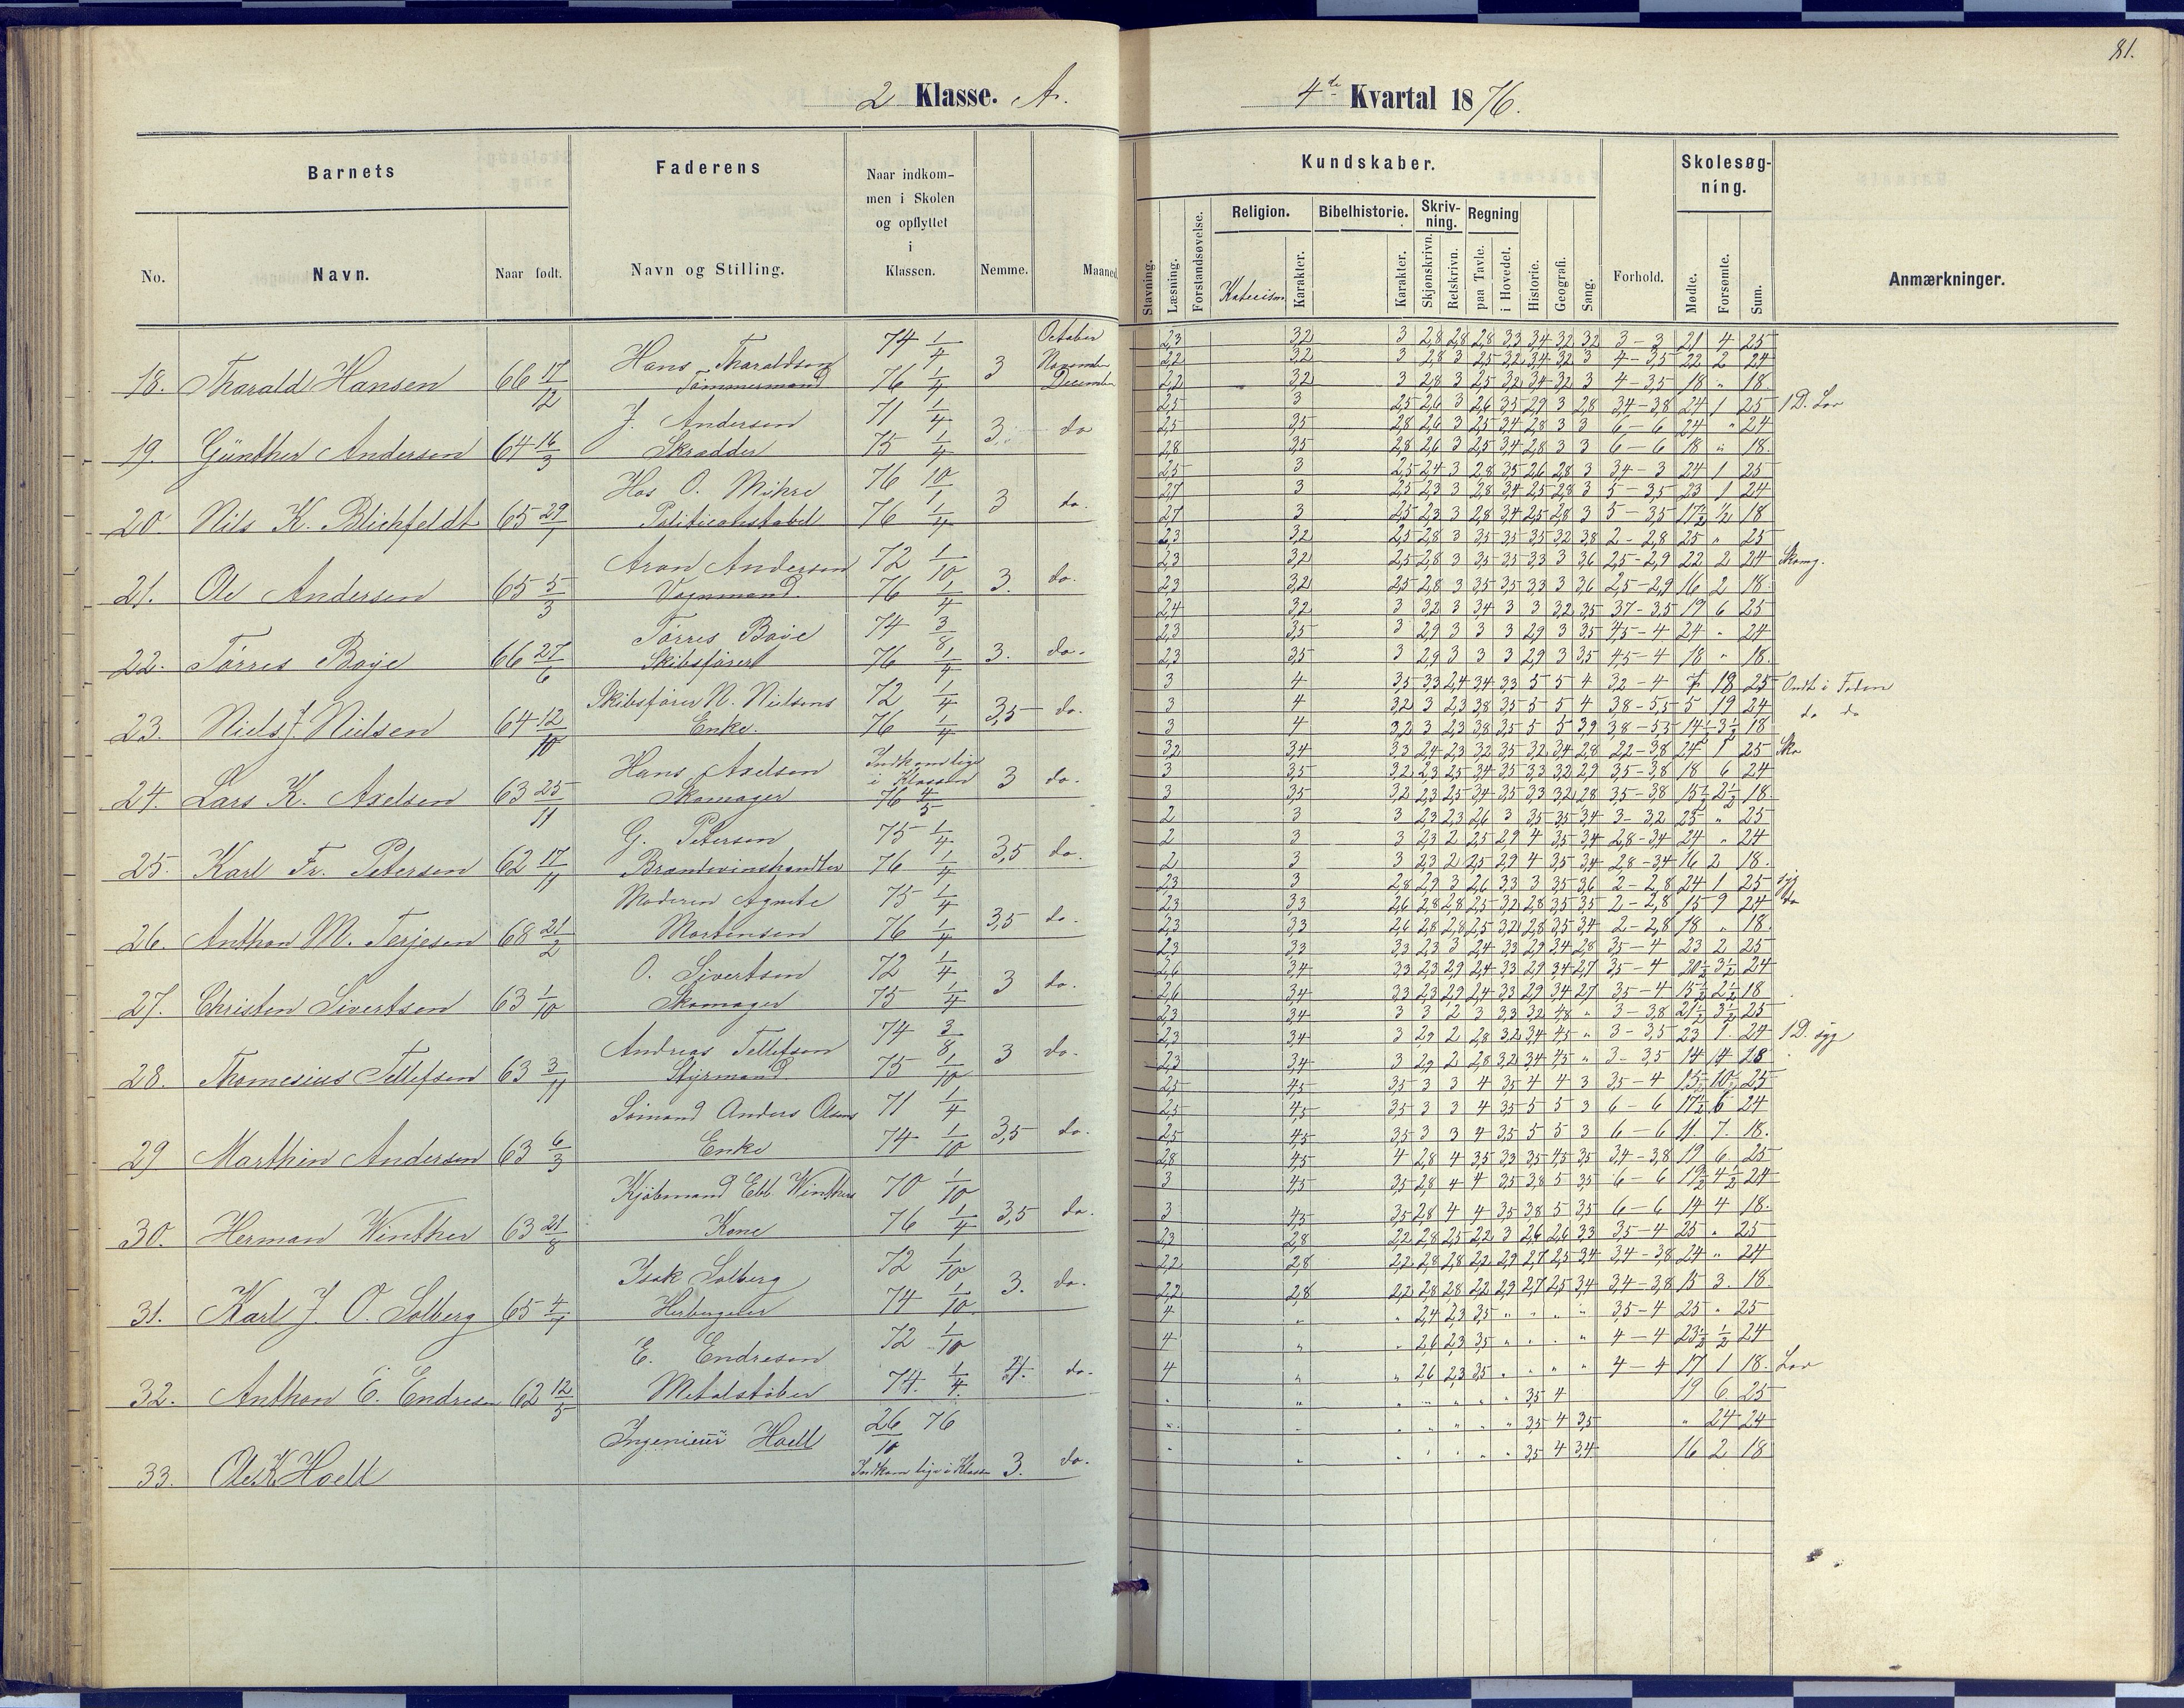 81.
2 Klasse. A.
4de Kvartal 1876.
Barnets
Faderens
Naar indkommen i Skolen og opflyttet i Klassen.
No.
Navn.
Naar født.
Navn og Stilling.
Nemme.
Maaned.
Kundskaber.
Skolesøgning.
Stavning.
Læsning.
Forstandsøvelse.
Religion.
Karakter.
Bibelhistorie.
Karakter.
Skrivning.
Skjønskrivn.
Retskrivn.
Regning
paa Tavle.
i Hovedet.
Historie.
Geografi.
Sang.
Forhold.
Mødte.
Forsømte.
Sum.
Anmærkninger.
18. Tharald Hansen 66 17/12 Hans Tharaldsen Tømmermand 74 1/4 76 1/4 3 October November December
2,3 3,2 3 2,8 2,8 2,8 3,3 3,4 3,2 3,2 3-3 21 4 25
2,2 3,2 3 2,8 3 2,5 3,2 3,4 3,2 3 4-3,5 22 2 24
2,2 3,2 3 2,8 3 2,5 3,2 3,4 3,2 3 4-3,5 18 " 18
19. Günther Andersen 64 16/3 J. Andersen Skrædder 71 1/4 75 1/4 3. do
2,5 3 2,5 2,6 3 2,6 3,5 2,9 3 2,8 3,4-3,8 24 1 25 1 D. Lov
2,5 3,5 2,8 2,6 3 2,5 3,4 2,8 3 3 6-6 24 " 24
2,8 3,5 2,8 2,6 3 2,5 3,4 2,8 3 3 6-6 18 " 18.
20. Nils K. Blichfeldt 65 29/1 Hos O. Politiconstabel 76 10/1 76 1/4 3 do.
2,5 3 2,5 2,4 3 2,8 3,5 2,6 2,8 3 3,4-3 24 1 25
2,7 3 2,5 2,3 3 2,8 3,4 2,5 2,8 3 5-3,5 23 1 24
2,7 3 2,5 2,3 3 2,8 3,4 2,5 2,8 3 5-3,5 17½ ½ 18
21. Ole Andersen 65 5/3 Aron Andersen Vognmand. 72 1/10 76 1/4 3. do.
2,3 3,2 2,5 2,8 3 3,5 3,5 3,5 3,2 3,8 2-2,8 25 " 25
2,3 3,2 2,5 2,8 3 3,5 3,5 3,3 3 3,6 2,5-2,9 22 2 24
2,3 3,2 2,5 2,8 3 3,5 3,5 3,3 3 3,6 2,5-2,9 16 2 18.
22. Tørres Boye 66 27/6 Tørres Boie Skibsfører 74 3/8 76 1/4 3. do.
2,4 3,2 3 3,2 3 3,4 3 3 3,2 3,5 3,7-3,5 19 6 25
2,3 3,5 3 2,9 3 3 3 2,9 3 3,5 4,5-4 24 " 24
2,3 3,5 3 2,9 3 3 3 2,9 3 3,5 4,5-4 18 " 18.
23. Niels J Nielsen 64 12/10 Skibsfører N. Nielsens Enke. 72 1/4 76 1/4 3,5 do.
3 4 3,5 3,3 2,4 3,4 3,3 5 5 4 3,2-4 7 18 25 Ondt i Foden
3 4 3,2 3 2,3 3,8 3,5 5 5 4 3,8-5,5 5 19 24 do do
3 4 3,2 3 2,3 3,8 3,5 5 5 3,9 3,8-5,5 14½ 3½ 18
24. Lars K. Axelsen 63 25/11 Hans Axelsen Skomager Indkom lige i Klassen 76 4/5 3 do.
3,2 3,4 3,3 2,4 2,3 3,2 3,5 3,2 3,4 2,8 2,2-3,8 24 1 25
3 3,5 3,2 2,3 2,5 3,4 3,5 3,3 3,2 2,9 3,5-3,8 18 6 24
3 3,5 3,2 2,3 2,5 3,4 3,5 3,3 3,2 2,8 3,5-3,8 15½ 2½ 18
25. Karl Fr. Petersen 62 17/11 G. Petersen Brændevinshandler 75 1/4 76 1/4 3,5 do.
2 3 3 2,3 2,3 2,6 3 3,5 3,5 3,4 3-3,2 25 " 25
2 3 3 2,3 2 2,5 2,9 4 3,5 3,4 2,8-3,4 24 " 24
2 3 3 2,3 2 2,5 2,9 4 3,5 3,4 2,8-3,4 16 2 18.
26. Anthon M. Terjesen 68 21/2 Moderen Agnete Mortensen 75 1/4 76 1/4 3,5 do.
2,3 3 2,8 2,9 3 2,6 3,3 3 3,5 3,6 2-2,8 24 1 25 syg
2,3 3,3 2,6 2,8 2,8 2,5 3,2 2,8 3,5 3,5 2-2,8 15 9 24 do
2,3 3,3 2,6 2,8 2,8 2,5 3,2 2,8 3,5 3,4 2-2,8 18 " 18.
27. Christen Sivertsen 63 1/10 O. Sivertsen Skomager 72 1/4 75 1/4 3 do.
2,3 3,3 3,3 2,3 3 2,4 3,3 2,9 3,4 2,8 3,5-4 23 2 25
2,6 3,4 3,3 2,3 2,9 2,4 3,3 2,9 3,4 2,7 3,5-4 20½ 3½ 24
2,6 3,4 3,3 2,3 2,9 2,4 3,3 2,9 3,4 2,7 3,5-4 15½ 2½ 18
28. Thomesius Tellefsen 63 3/11 Andreas Tellefsen Styrmand. 74 3/8 75 1/10 3 do.
2,3 3,4 3 3 2 3 3,3 3,2 4,8 " 3-3,8 21½ 3½ 25
2,3 3,4 3 2,9 2 2,8 3,2 3,4 4,5 " 3-3,5 23 1 24 1 D. syg
2,3 3,4 3 2,9 2 2,8 3,2 3,4 4,5 " 3-3,5 14 4 18
29 Marthin Andersen 63 6/3 Sømand Anders Olsens Enke 71 1/4 74 1/10 3,5 do.
2,5 4,5 3,5 3 3 4 3,5 4 4 3 3,5-4 15 10 25
2,5 4,5 3,5 3 3 4 3,5 5 5 3 6-6 17½ 6 24
2,5 4,5 3,5 3 3 4 3,5 5 5 3 6-6 11. 7. 18.
30. Herman Winther 63 21/8 Kjøbmand Ebb. Winthers Kone 70 1/10 76 1/4 3,5 do.
2,8 4,5 4 2,8 4 3,5 3,3 3,5 4,5 3,5 3,4-3,8 19 6 25
3 4,5 3,5 2,8 4 4 3,5 3,8 5 3,5 6-6 19½ 4½ 24
3 4,5 3,5 2,8 4 4 3,5 3,8 5 3,5 6-6 14 4 18.
31. Karl J. O. Solberg 65 4/7 Isak Solberg 72 1/10 74 1/10 3. do.
2,3 2,8 2,2 2,8 2,5 2,2 3 2,6 2,6 3,3 3,5-4 25 " 25
2,2 2,8 2,2 2,8 2,8 2,2 2,9 2,7 2,5 3,4 3,4-3,8 24 " 24
2,2 2,8 2,2 2,8 2,8 2,2 2,9 2,7 2,5 3,4 3,4-3,8 15 3. 18.
32. Anthon E. Endresen 62 12/5 E. Endresen Metalstøber 72 1/10 74. 1/4. 4. do.
4 " " 2,4 2,3 3,5 " " " " 3,5-4 25 " 25
4 " " 2,6 2,3 3,5 " " " " 4-4 23½ ½ 24
4 " " 2,6 2,3 3,5 " " " " 4-4 17 1 18. Lov
33. Ole K Hoell Ingenieur Hoell 26/10 76 Indkom lige i Klassen 3. do.
" " " " " " " 3,5 4 19 6 25
" " " " " " " 3,5 4 3,5 " 24 24
" " " " " " " 3,5 4 3,4 16 2 18